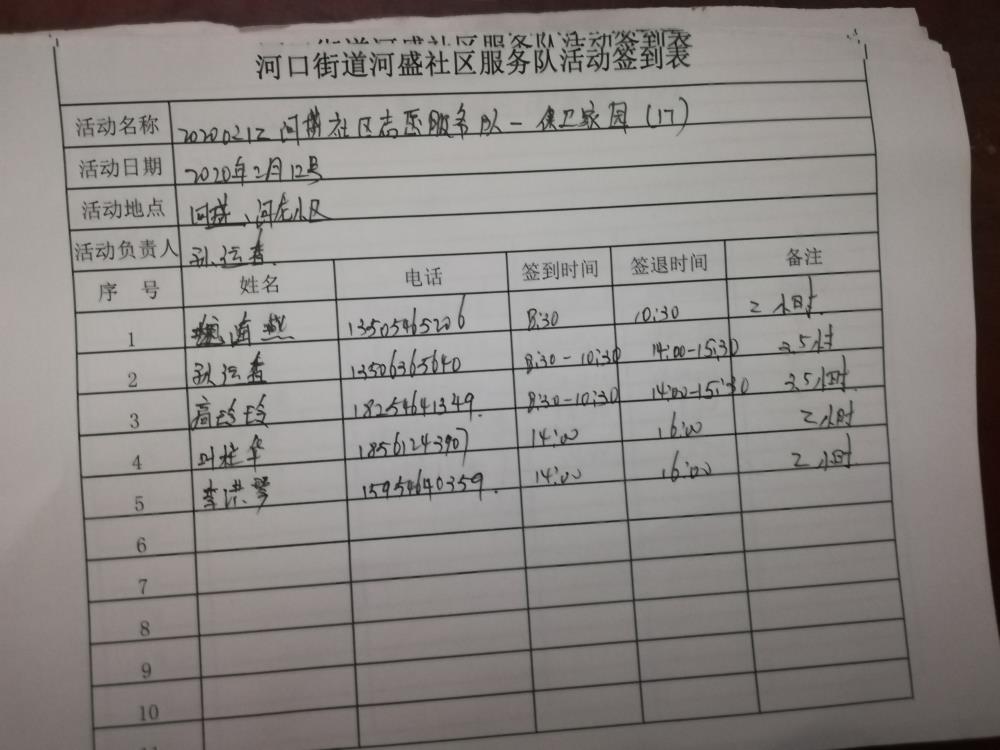 河口街道河盛社区服务队活动签到表
河口街道河盛社区服务队活动签到表
活动名称 20200212 河 社区志愿服务队一保卫家园(17)
活动日期 2020年2月12号
活动地点 河 、河 小区
活动负责人 孙 香
序 号 姓名 电话 签到时间 签退时间 备注
1 燕 13505465206 8:30 10:30 2小时
2 孙 香 13506365640 8:30-10:30 14:00-15:30 3.5小时
3 高玲玲 18254641349. 8:30-10:30 14:00-15:30 3.5小时
4 叶桂华 18561243907 14:00 16:00 2小时
5 李洪琴 15954640359. 14:00 16:00 2小时
6
7
8
9
10